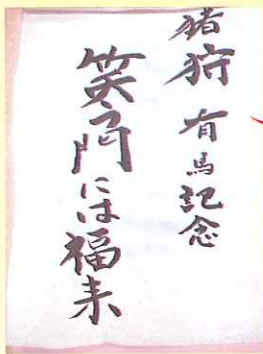 猪狩 有馬記念
笑門には福来